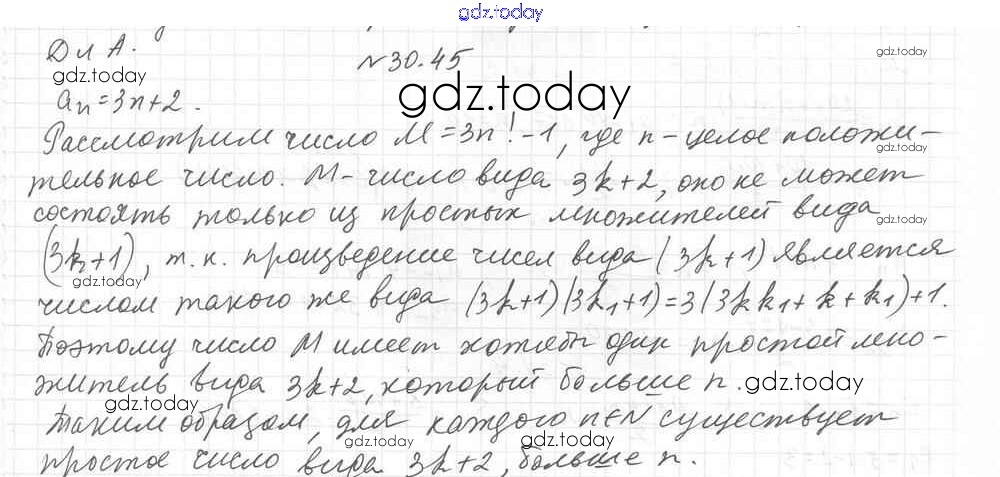 gdz.today
Дл А. №30.45
gdz.today
gdz.today
aₙ=3n+2. gdz.today
Рассмотрим число M=3n!-1, где n-целое положи-
gdz.today
тельное число. M-число вида 3k+2, оно не может
состоять только из простых множителей вида
gdz.today
(3k+1), т.к. произведение чисел вида (3k+1) является
gdz.today
числом такого же вида (3k+1)(3k₁+1)=3(3kk₁+k+k₁)+1.
Поэтому число M имеет хотябы один простой мно-
житель вида 3k+2, который больше n. gdz.today
gdz.today
Таким образом, для каждого n∈N существует
gdz.today
простое число вида 3k+2, больше n.
gdz.today